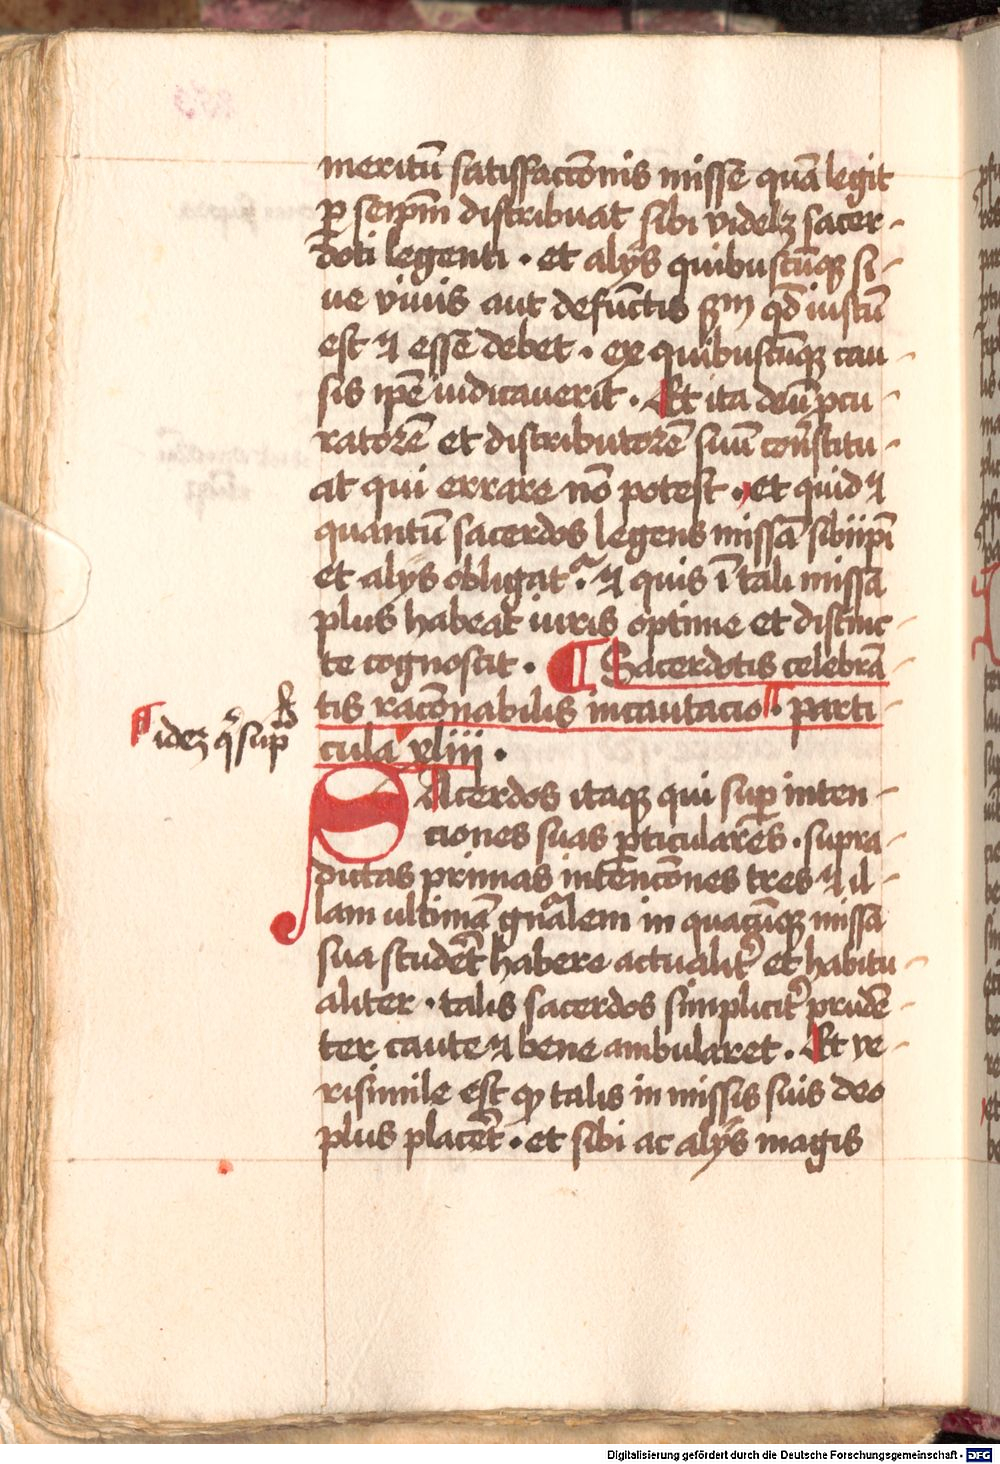 meritū satisfaccōnis missē quā legit
ꝑ seip̄m distribuat sibi videlꝫ sacer-
doti legenti · et alijs quibuscūqꝫ si-
ue viuis aut defūctis sꝫm qđ iustū
est ⁊ esse debet · ex quibuscūqꝫ cau-
sis ip̄e iudicauerit · Et ita deū ꝓcu
ratorē et distributorē suū constitu-
at qui errare nō potest · et quid ⁊
quantū sacerdos legens missā sibiip̄i
et alijs obligat᷑ · ⁊ quis ī tali missa
plus habeat iuris optime et distinc-
te cognoscit · ¶ Sacerdotis celebrā-
tis racōnabilis incautacio · parti-
cula xliii ·
idez
Sacerdos itaqꝫ qui suꝑ inten-
ciones suas ꝑticulares · supra-
dictas primas intencōnes tres ⁊ il-
lam ultimā gn̄alem in quacūqꝫ missa
sua studet habere actualit᷑ et habitu-
aliter · talis sacerdos simplicit᷑ prudē-
ter caute ⁊ bene ambularet · Et ve-
risimile est ꝙ talis in missis suis deo
plus placet · et sibi ac alijs magis
Digitalisierung gefördert durch die Deutsche Forschungsgemeinschaft - DFG